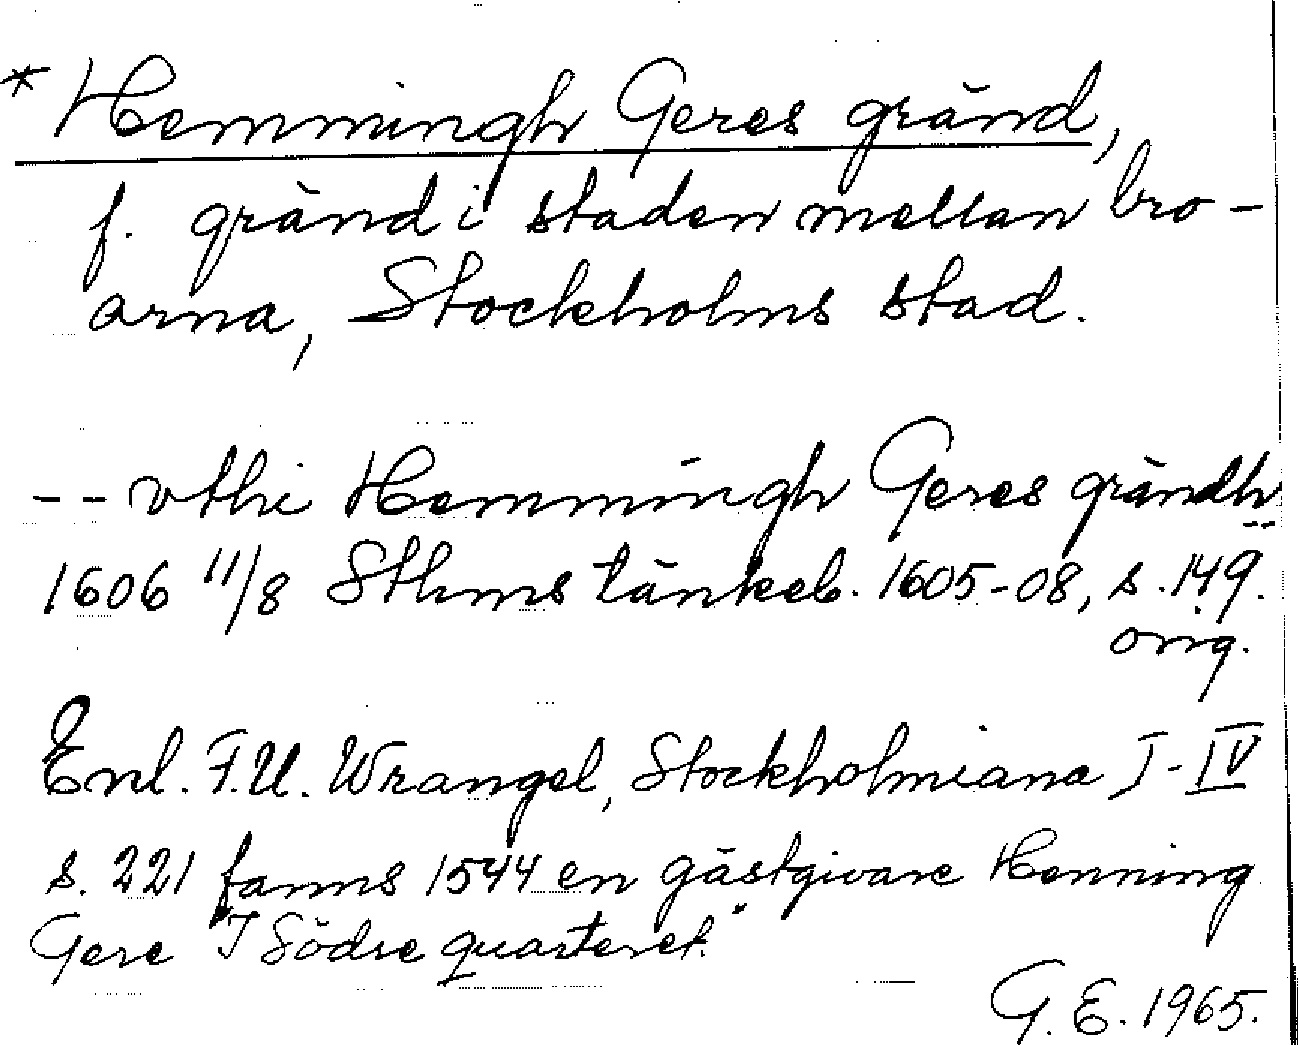 * Hemmingh Geres gränd,
f. gränd i staden mellan bro-
arna, Stockholms stad.
-- vthi Hemmingh Geres grändh
1606 11/8 Sthms tänkeb. 1605-08, s. 149.
orig.
Enl. F.U. Wrangel, Stockholmiana I-IV
s. 221 fanns 1544 en gästgivare Henning
Gere "I Södre quarteret."
G. E. 1965.